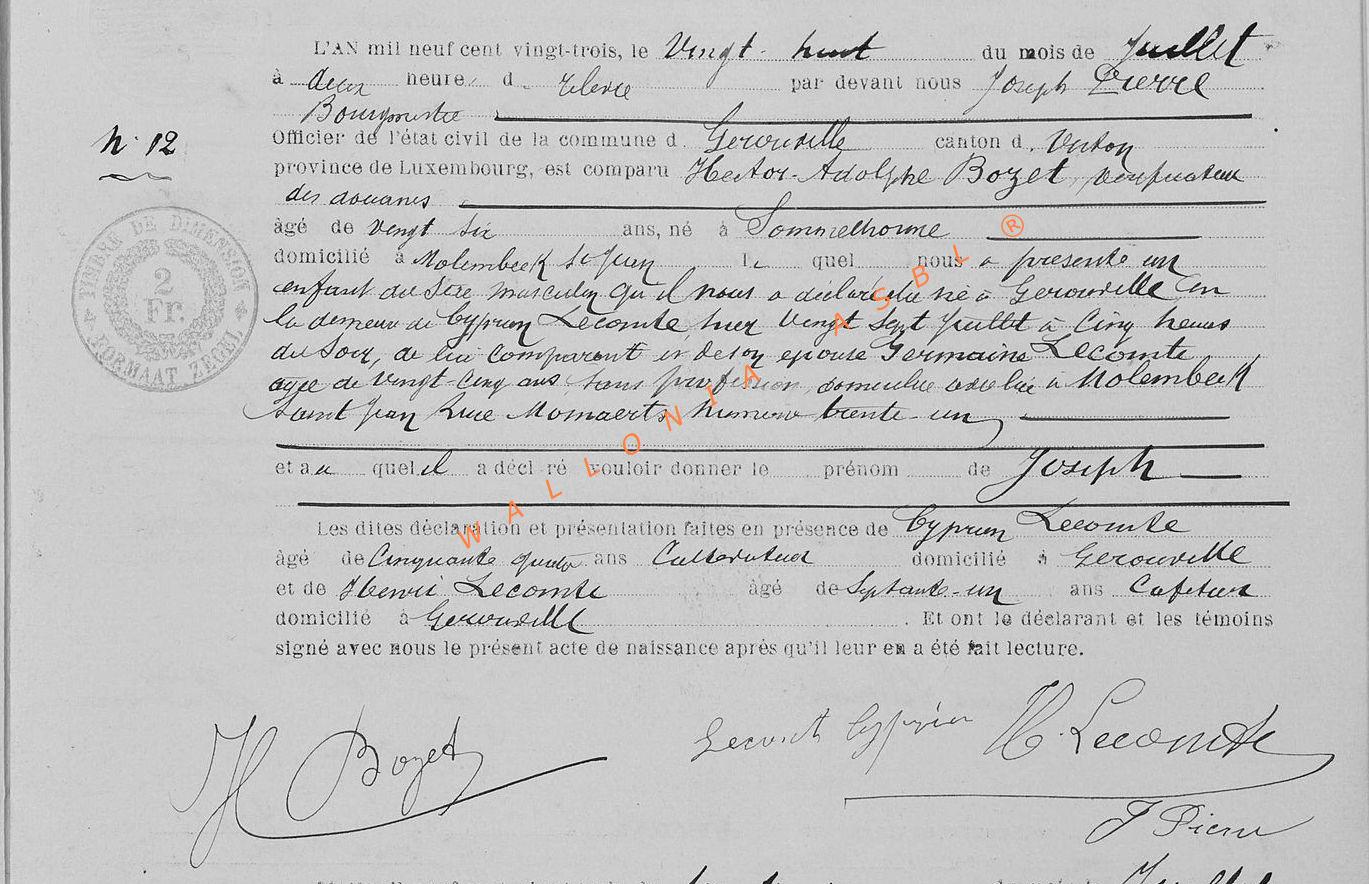 L'AN mil neuf cent vingt-trois, le Vingt-huit du mois de Juillet
à deux heures d relevée par devant nous Joseph Pierre
Bourgmestre
N° 12
Officier de l'état civil de la commune d Gerouville canton d. Virton
province de Luxembourg, est comparu Hector-Adolphe Bozet, vérificateur
des douanes
âgé de vingt six ans, né à Sommethonne
domicilié à Molembeek St Jean le quel nous a présenté un
enfant du Sexe masculin qu'il nous a déclaré être né à Gerouville en
la demeure de Cyprien Lecomte hier Vingt Sept Juillet à Cinq heures
du Soir, de lui Comparant et de son épouse Germaine Lecomte
agée de Vingt-Cinq ans, sans profession, domiciliée avec lui à Molembeek
Saint Jean Rue Momaerts numéro trente-un
et au quel il a déclaré vouloir donner le prénom de Joseph
Les dites déclaration et présentation faites en présence de Cyprien Lecomte
âgé de Cinquante ans Cultivateur domicilié à Gerouville
et de Henri Lecomte âgé de Septante-un ans Cafetier
domicilié à Gerouville . Et ont le déclarant et les témoins
signé avec nous le présent acte de naissance après qu'il leur en a été fait lecture.
TIMBRE DE DIMENSION
2
Fr.
FORMAAT ZEGEL
WALLONIA ASBL ®
H Bozet
Lecomte Cyprien H. Lecomte
J Pierre